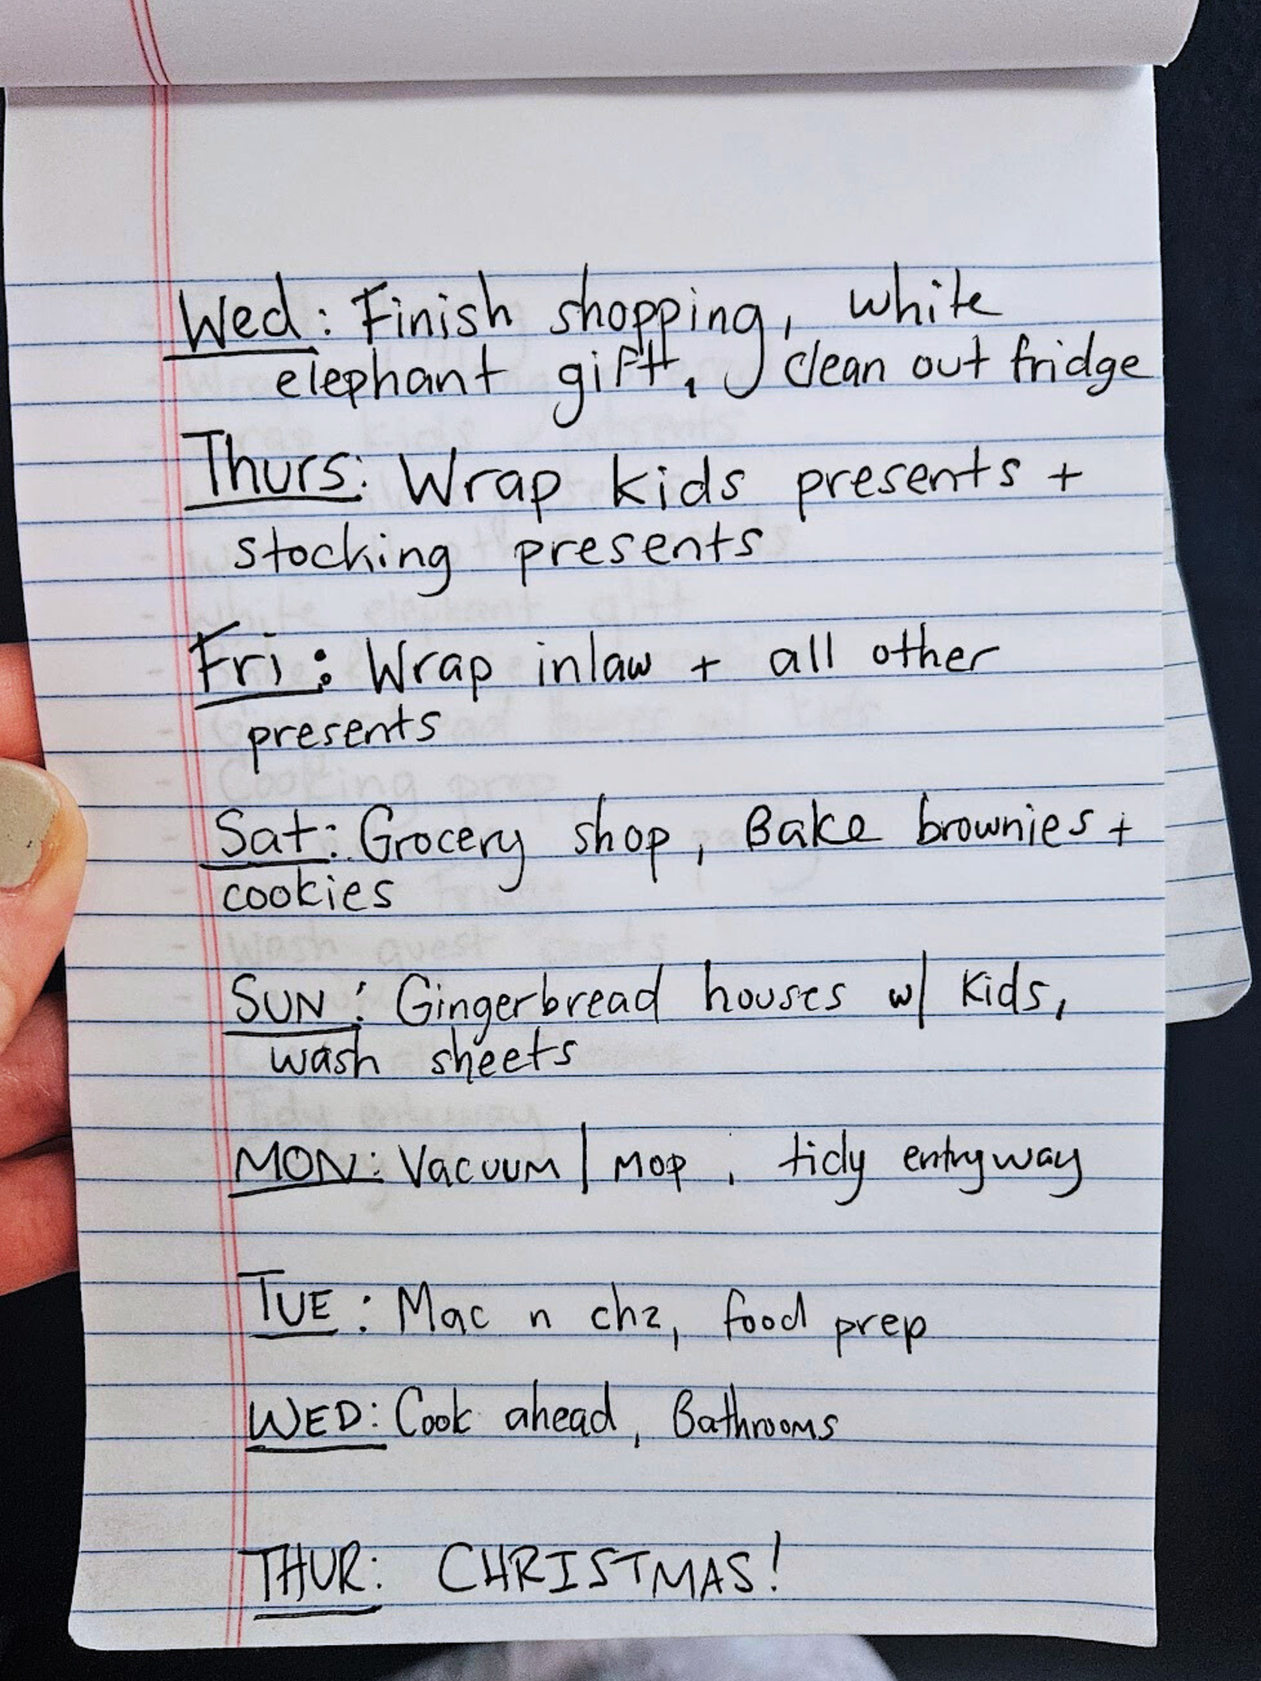 Wed: Finish shopping, white
elephant gift, clean out fridge
Thurs: Wrap kids presents +
stocking presents
Fri: Wrap inlaw + all other
presents
Sat: Grocery shop, Bake brownies +
cookies
SUN: Gingerbread houses w/ kids,
wash sheets
MON: Vacuum/mop, tidy entryway
TUE: Mac n chz, food prep
WED: Cook ahead, Bathrooms
THUR: CHRISTMAS!